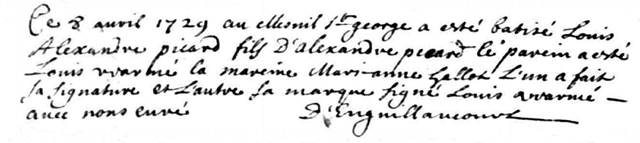 Ce 8 avril 1729 au Mesnil St george a esté batisé Louis
Alexandre picard fils D'alexandre picard lé parein a esté
Louis warmé la mareine Marianne hallot L'un a fait
sa signature et L'autre sa marque signé Louis warmé –
avec nous curé D'Enguillaucourt